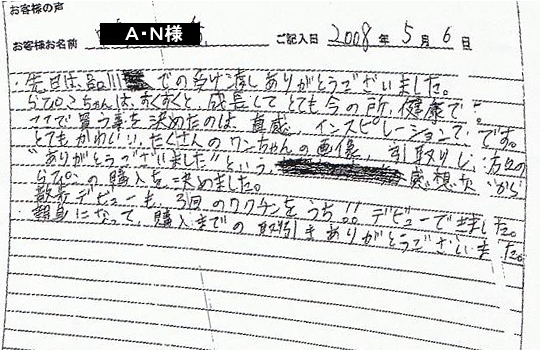 お客様の声
お客様お名前 A・N様 ご記入日 2008年5月6日
先日は、品川 での受け渡しありがとうございました。
らぴぃちゃんは、すくすくと、成長して とても今の所、健康です。
ここで買う事を決めたのは、直感、インスピレーションで、です。
とてもかわいい、たくさんのワンちゃんの画像、引取りし 方の
"ありがとうございました"という、 感想文 から
の購入を決めました。
散歩デビューも、3回のワクチンをうち!! デビューできました。
親身になって、購入までの 取引きありがとうございました。